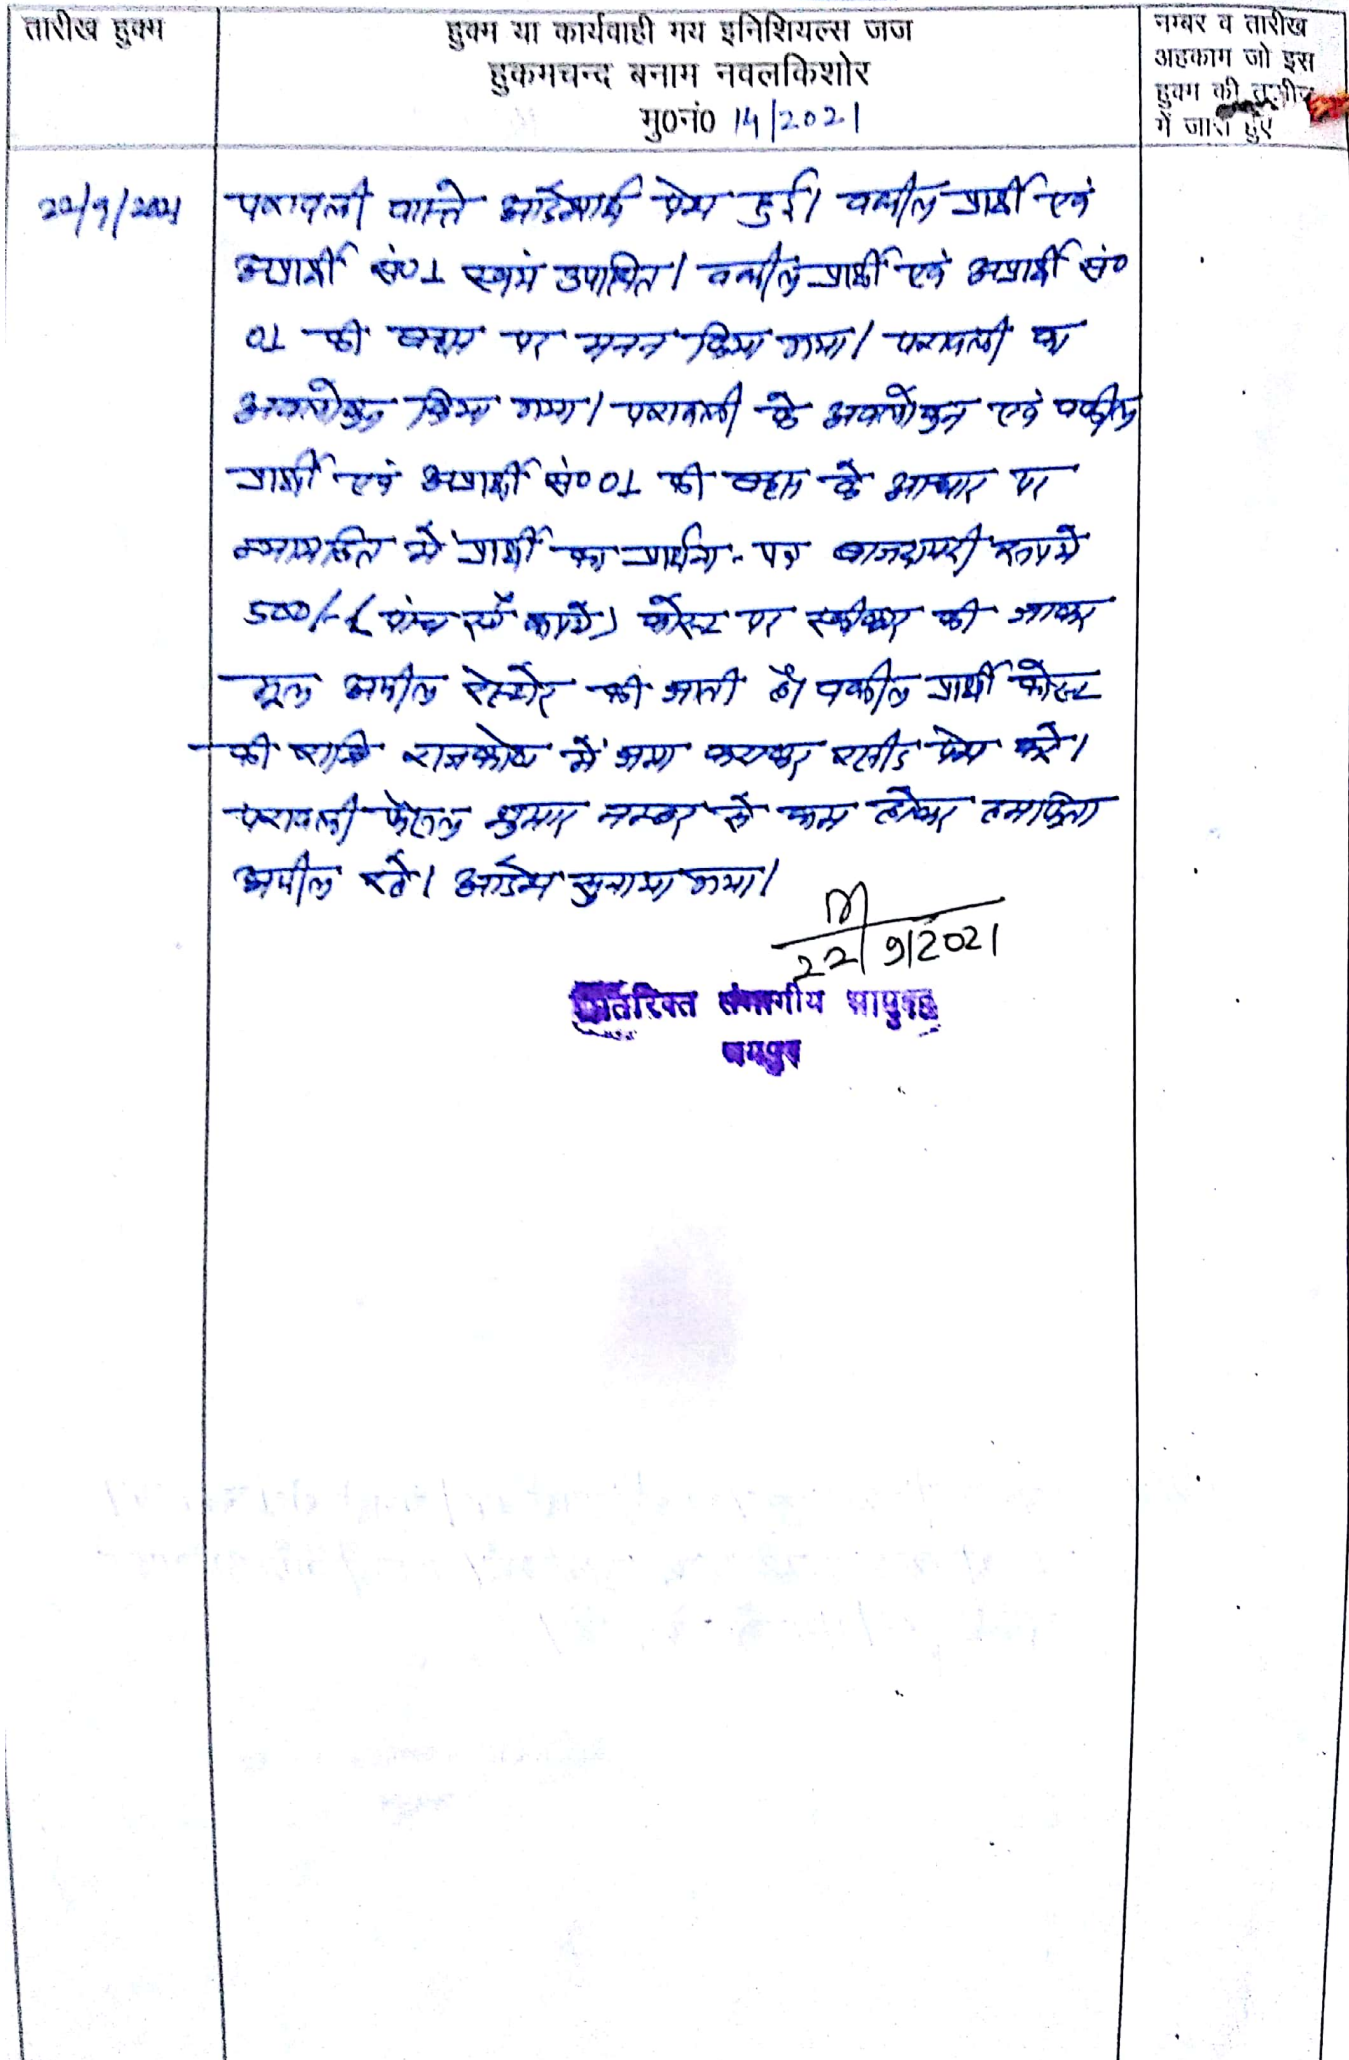 तारीख हुक्म
हुक्म या कार्यवाही मय इनिशियल्स जज
हुकमचन्द बनाम नवलकिशोर
मु0नं0 14/2021
नम्बर व तारीख
अहकाम जो इस
हुक्म की तामील
में जारी हुए
22/9/2021
पत्रावली वास्ते आदेशार्थ पेश हुई। वकील प्रार्थी एवं
अप्रार्थी सं०1 स्वयं उपस्थित। वकील प्रार्थी एवं अप्रार्थी सं०
01 की बहस पर मनन किया गया। पत्रावली का
अवलोकन किया गया। पत्रावली के अवलोकन एवं वकील
प्रार्थी एवं अप्रार्थी सं० 01 की बहस के आधार पर
न्यायहित में प्रार्थी का प्रार्थना-पत्र बाजदायरी रूपये
500/- (पांच सौ रूपये) कोस्ट पर स्वीकार की जाकर
मूल अपील रेस्टोर की जाती है। वकील प्रार्थी कोस्ट
की राशि राजकोष में जमा कराकर रसीद पेश करे।
पत्रावली फैसल शुमार नम्बर से कम होकर
अपील रहे। आदेश सुनाया गया।
22/9/2021
अतिरिक्त संभागीय आयुक्त
जयपुर